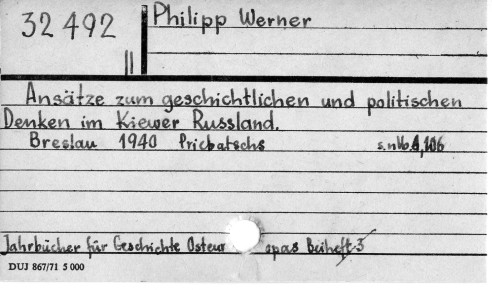 32 492
II
Philipp Werner
Ansätze zum geschichtlichen und politischen
Denken im Kiewer Russland.
Breslau 1940 Pricbatschs
Jahrbücher für Geschichte Osteur opas Beiheft 3
DUJ 867/71 5 000